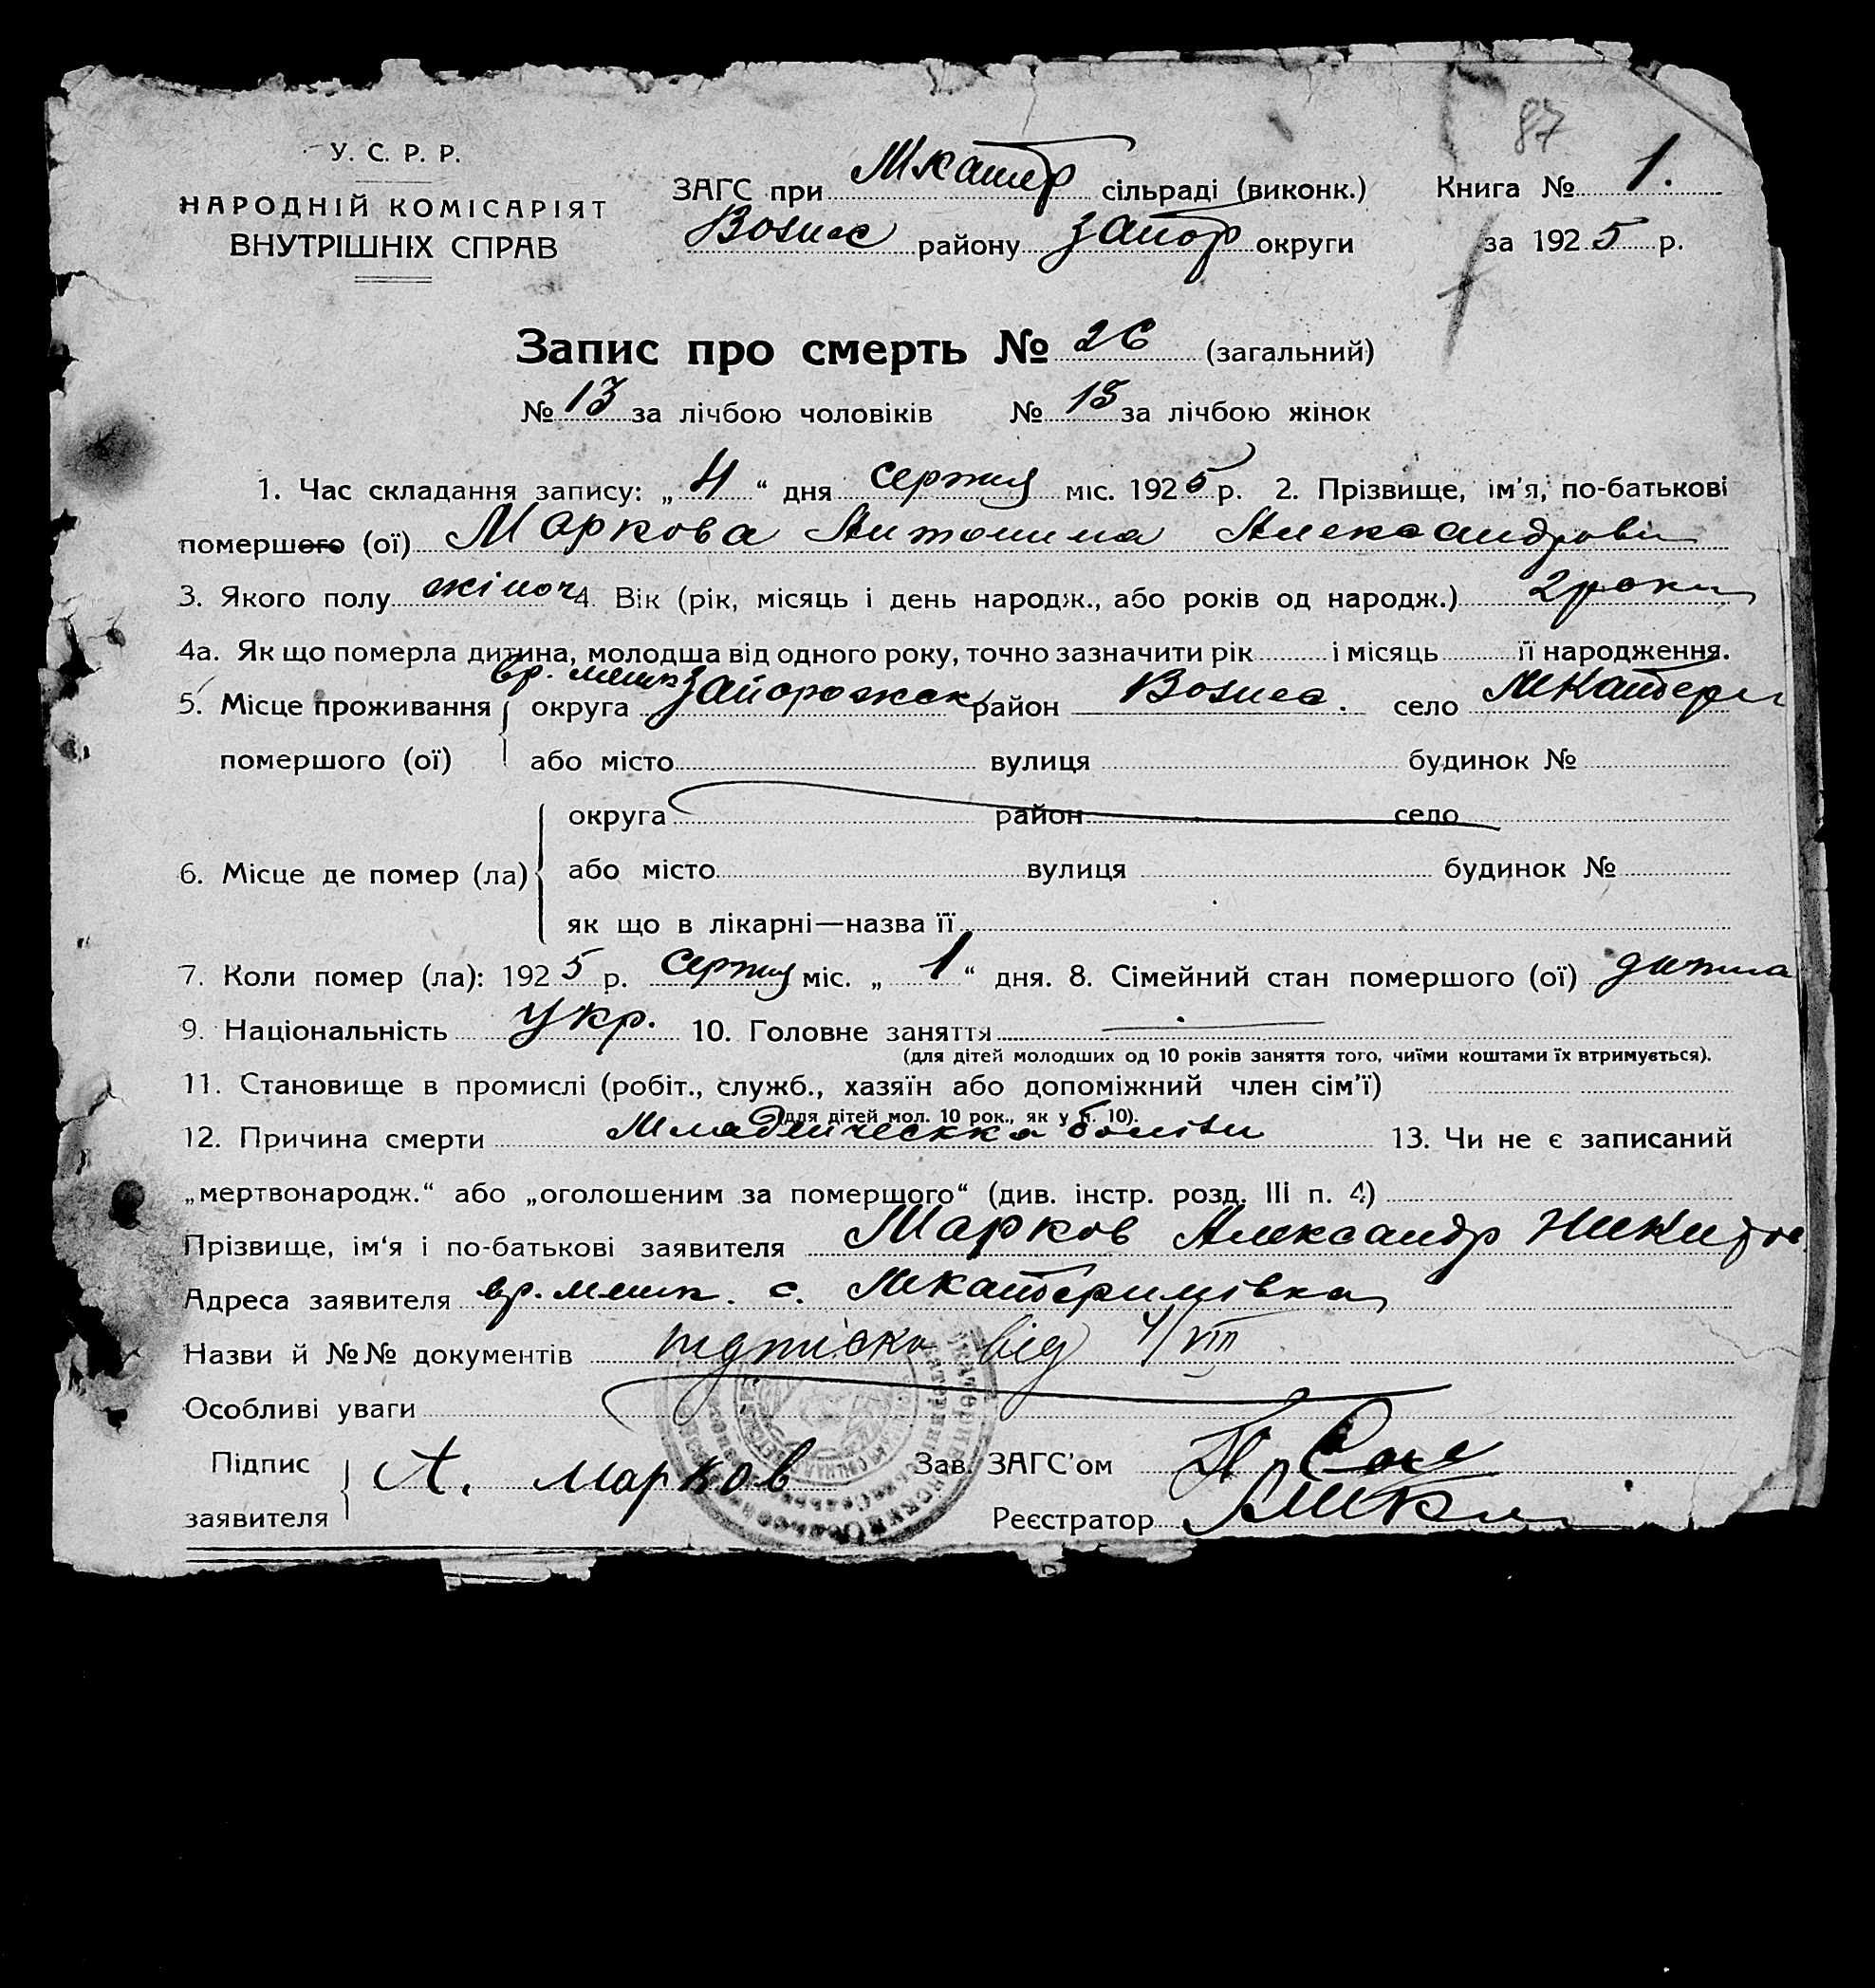 87
У. С. Р. Р.
НАРОДНІЙ КОМІСАРІЯТ
ВНУТРІШНІХ СПРАВ
ЗАГС при Мкатер сільраді (виконк.)
Вознес району Запор округи
Книга № 1.
за 1925 р.
Запис про смерть № 26 (загальний)
№ 13 за лічбою чоловіків № 13 за лічбою жінок
1. Час складання запису: „ 4 “ дня серпня міс. 1925 р. 2. Прізвище, ім'я, по-батькові
помершого (ої) Маркова Антонина Александровн
3. Якого полу жіноч 4. Вік (рік, місяць і день народж., або років од народж.) 2 роки
4а. Як що померла дитина, молодша від одного року, точно зазначити рік і місяць її народження.
вр. мешк
5. Місце проживання округа Запорожськ район Вознес. село МКатер
помершого (ої) або місто вулиця будинок №
округа район село
6. Місце де помер (ла) або місто вулиця будинок №
як що в лікарні—назва її
7. Коли помер (ла): 1925 р. Серпня міс. „ 1 “ дня. 8. Сімейний стан помершого (ої) дитина
9. Національність Укр. 10. Головне заняття
(для дітей молодших од 10 років заняття того, чиїми коштами їх втримується).
11. Становище в промислі (робіт., служб., хазяїн або допоміжний член сім'ї)
(для дітей мол. 10 рок., як у п. 10).
12. Причина смерти Младенческка болізн 13. Чи не є записаний
„мертвонародж.“ або „оголошеним за помершого“ (див. інстр. розд. III п. 4)
Прізвище, ім'я і по-батькові заявителя Марков Александр Никитов
Адреса заявителя вр. мешк. с. Мкатеринівка
Назви й №№ документів підпіска від 4/VIII
Особливі уваги
Підпис заявителя А. Марков
Зав. ЗАГС'ом
Реєстратор